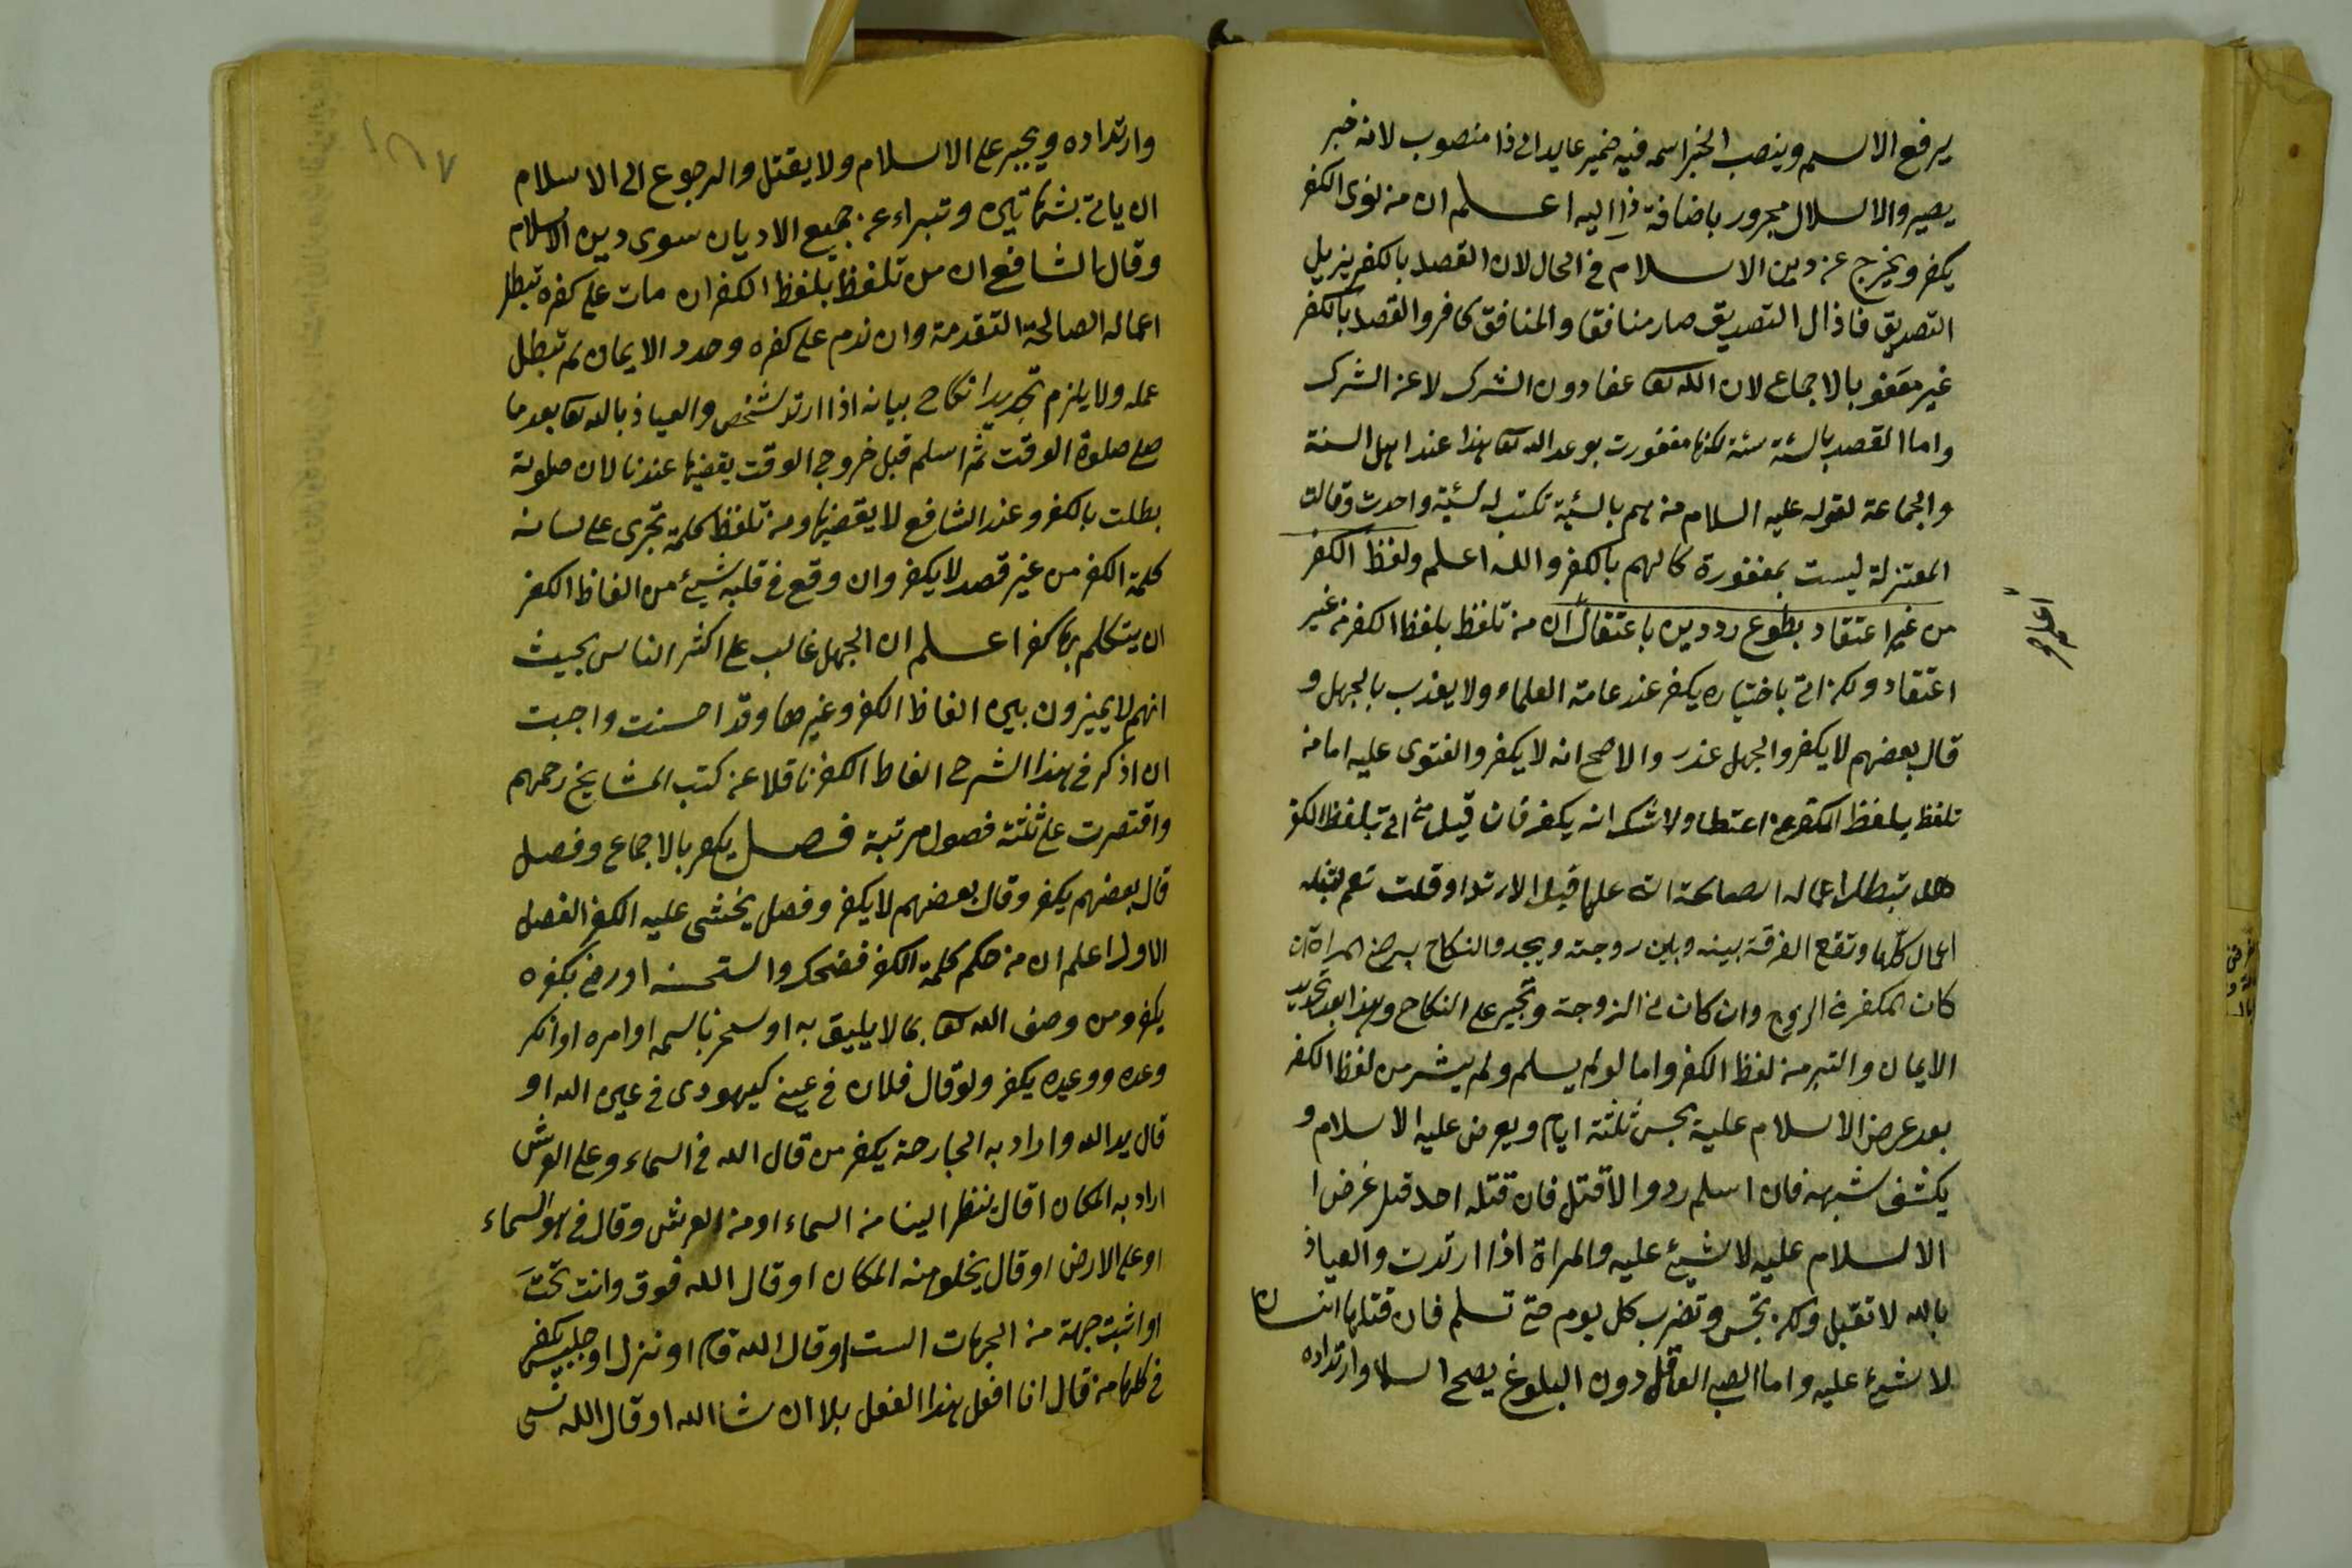 يرفع الاسم وينصب الخبر اسمه فيه ضمير عايد الى ذا منصوب لانه خبر
يصير والاسلال مجرور باضافة ذا اليه اعلم ان من نوى الكفر
يكفر ويخرج عن دين الاسلام في الحال لان القصد بالكفر يزيل
التصديق فاذال التصديق صار منافقا والمنافق كافر والقصد بالكفر
غير معفو بالاجماع لان الله تعا عفا دون الشرك لا عن الشرك
واما القصد بالسئة سئة لكنها مغفورت بوعد الله تعا هذا عند اهل السنة
والجماعة لقوله عليه السلام من هم بالسئية تكتب له سئية واحدت وقالت
المعتزلة ليست بمغفورة كالهم بالكفر والله اعلم ولفظ الكفر
من غير اعتقاد بطوع رد دين باعتقال ان من تلفظ بلفظ الكفر من غير
اعتقاد ولكن اتى باختياره يكفر عند عامة العلماء ولا يعذب بالجهل و
قال بعضهم لا يكفر والجهل عذر والاصح انه لا يكفر والفتوى عليه اما من
تلفظ بلفظ الكفر عن اعتقاد ولا شك انه يكفر فان قيل من اتى بلفظ الكفر
هل تبطل اعماله الصالحة التى عملها قبل الارتداد قلت نعم
اعمال كلها وتقع الفرقة بينه وبين زوجته ويجدد النكاح برضى المراة ان
كان الكفر فى الزوج وان كان فى الزوجة وتجبر على النكاح وهذا بعد تجديد
الايمان والتبر من لفظ الكفر واما لو لم يسلم ولم يتبر من لفظ الكفر
بعد عرض الاسلام عليه يحبس ثلثة ايام ويعرض عليه الاسلام و
يكشف شبهه فان اسلم رد والا قتل فان قتله احد قبل عرض ا
الاسلام عليه لا شيئ عليه والمراة اذا ارتدت والعياذ
بالله لا تقبل ولكن تحبس وتضرب كل يوم حتى تسلم فان قتلها انسان
لا شيئ عليه واما الصبى العاقل دون البلوغ يصح اسلا وارتداده
وارتداده ويجبر على الاسلام ولا يقتل والرجوع الى الاسلام
ان ياتى بشهاتين وتبراء عن جميع الاديان سوى دين الاسلام
وقال الشافع ان من تلفظ بلفظ الكفر ان مات على كفره تبطل
اعماله الصالحة التقدمة وان ندم على كفره وجدد الايمان لم تبطل
عمله ولا يلزم تجديد انكاح بيانه اذا ارتد شخص والعياذ بالله تعا بعد ما
صلى صلوة الوقت ثم اسلم قبل خروجى الوقت يقضيها عندنا لان صلوته
بطلت بالكفر وعند الشافع لا يقضيها ومن تلفظ كلمة تجرى على لسانه
كلمة الكفر من غير قصد لا يكفر وان وقع فى قلبه شيئ من الفاظ الكفر
ان يتكلم بها كفر اعلم ان الجهل غالب على اكثر الناس بحيث
انهم لا يميزون بين الفاظ الكفر وغيرها وقد احسنت واجبت
ان اذكر فى هذا الشرح الفاظ الكفر ناقلا عن كتب المشايخ رحمهم
واقتصرت على ثلثة فصول مرتبة فصل يكفر بالاجماع وفصل
قال بعضهم يكفر وقال بعضهم لا يكفر وفصل يخشى عليه الكفر الفصل
الاول اعلم ان من حكم كلمة الكفر فضحك واستحسنه او رضى بكفره
يكفر ومن وصف الله تعا بما لا يليق به او سخر باسمه او امره او انكر
وعده ووعيده يكفر ولو قال فلان فى عينى كيهودى فى عين الله او
قال يد الله واراد به الجارحة يكفر من قال الله فى السماء وعلى العرش
اراد به المكان اقال ينظر الينا من السماء او من العرش وقال فى هو السماء
او على الارض او قال يخلو منه المكان او قال الله فوق وانت تحت
او اثبت جهة من الجهات الست او قال الله قام او نزل او جلس يكفر
فى كلها من قال انا افعل هذا الفعل بلا ان شا الله او قال الله